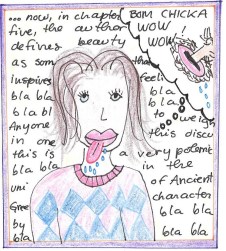 ...now, in chapter
five, the author
defines beauty
as som that
inspires feeli
bla bla bla
bla bl bla b
Anyone to weigh
in one this discu
this is a very potent
bla bla in the
uni of Ancient
Gree character
by bla bla bla
bla bla
BOM CHICKA
WOW !
WOW